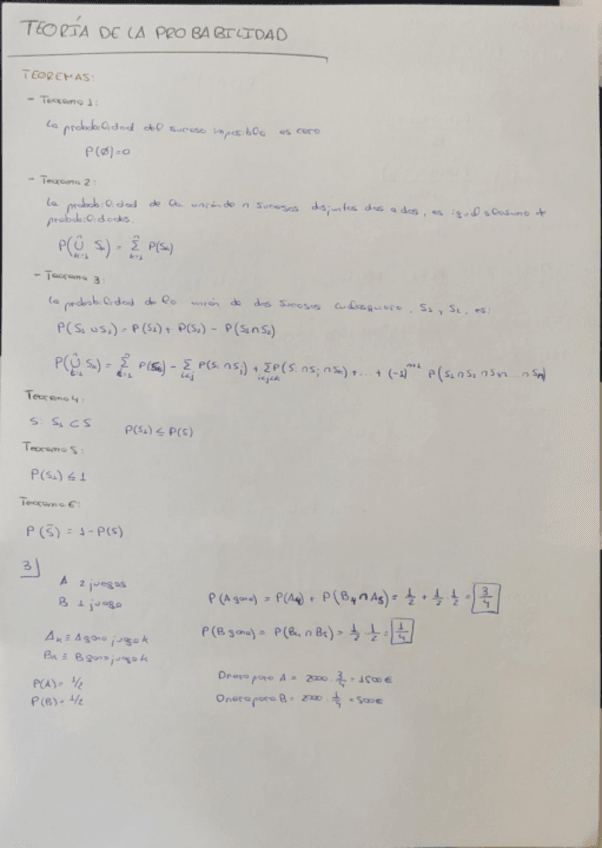 TEORÍA DE LA PROBABILIDAD
TEOREMAS:
- Teorema 1:
La probabilidad del suceso imposible es cero
P(Ø)=0
- Teorema 2:
La probabilidad de la unión de n sucesos disjuntos dos a dos, es igual a la suma de
probabilidades.
P(⋃ⁿₖ₌₁ Sₖ) = Σⁿₖ₌₁ P(Sₖ)
- Teorema 3:
La probabilidad de la unión de dos sucesos cualesquiera, S₁ y S₂, es:
P(S₁∪S₂) = P(S₁) + P(S₂) - P(S₁∩S₂)
P(⋃ⁿₖ₌₁ Sₖ) = Σⁿₖ₌₁ P(Sₖ) - Σ_{i<j} P(Sᵢ∩Sⱼ) + Σ_{i<j<k} P(Sᵢ∩Sⱼ∩Sₖ) + ... + (-1)ⁿ⁺¹ P(S₁∩S₂∩S₃∩...∩Sₙ)
Teorema 4:
Si S₁ ⊂ S P(S₁) ≤ P(S)
Teorema 5:
P(S₁) ≤ 1
Teorema 6:
P(S̄) = 1 - P(S)
3)
A 2 juegos
B 1 juego
Aₖ ≡ A gana juego k
Bₖ ≡ B gana juego k
P(A) = 1/2
P(B) = 1/2
P(A gana) = P(A₄) + P(B₄∩A₅) = 1/2 + 1/2 · 1/2 = 3/4
P(B gana) = P(B₄∩B₅) = 1/2 · 1/2 = 1/4
Dinero para A = 2000 · 3/4 = 1500€
Dinero para B = 2000 · 1/4 = 500€